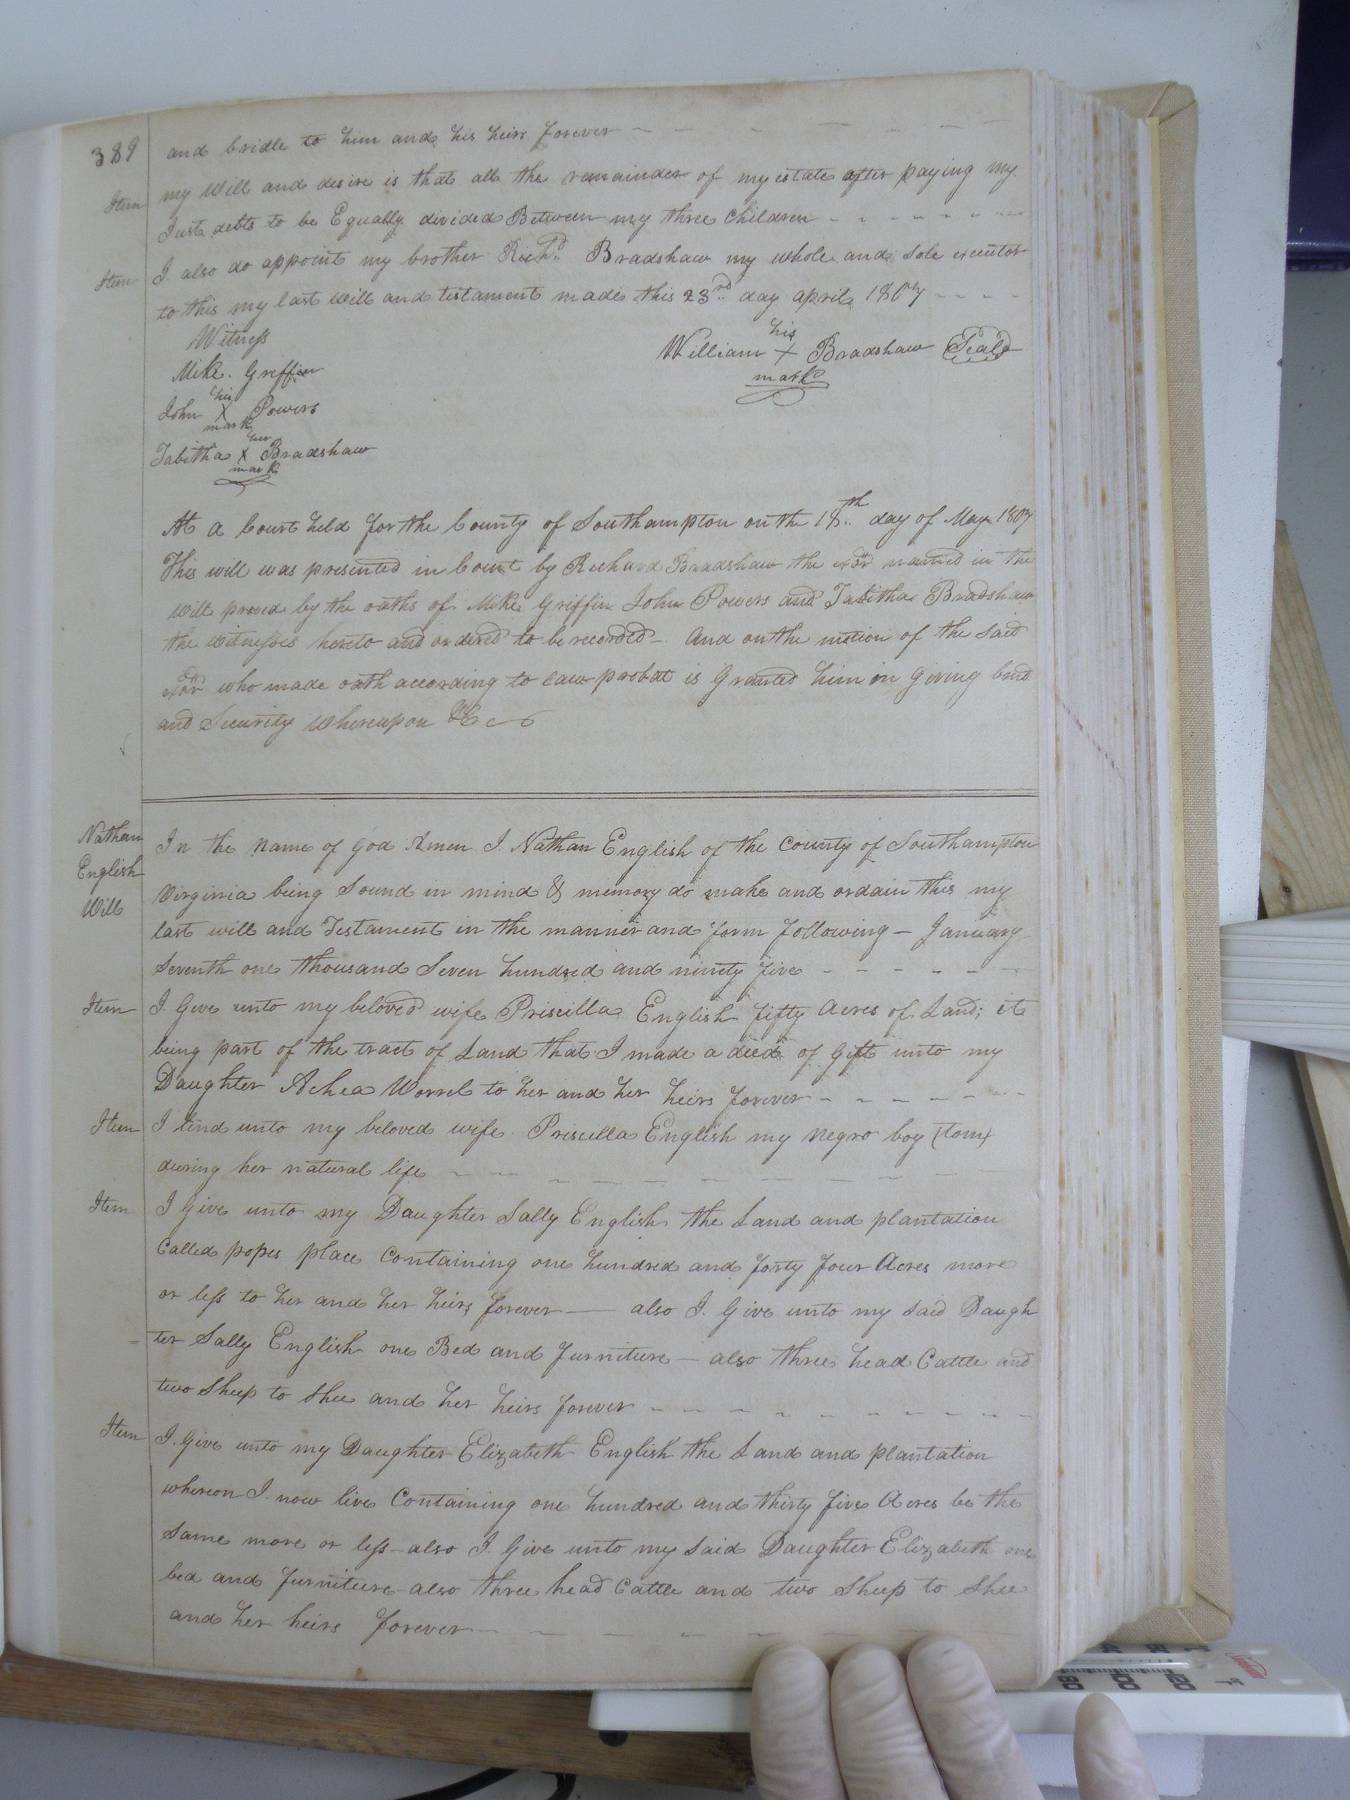 389
and bridle to him and his heirs forever
Item my will and desire is that all the remainder of my estate after paying my
Just debts to be Equally divided Between my three children
Item I also do appoint my brother Richd. Bradshaw my whole and sole executor
to this my last will and testament made this 23rd day april 1807
Witness
his
William X Bradshaw Seal
mark
Mike. Griffin
his
John X Powers
mark
her
Tabitha X Bradshaw
mark
At a Court held for the County of Southampton on the 18th day of May 1807
This will was presented in Court by Richard Bradshaw the exor named in the
will proved by the oaths of Mike Griffin John Powers and Tabitha Bradshaw
the witnesses hereto and ordered to be recorded – And on the motion of the said
exor who made oath according to law probat is Granted him on Giving bond
and Security whereupon &c
Nathan
English
Will
In the name of god Amen I Nathan English of the County of Southampton
Virginia being Sound in mind & memory do make and ordain this my
last will and Testament in the manner and form following – January
Seventh one thousand Seven hundred and ninety five
Item I Give unto my beloved wife Priscilla English fifty Acres of Land; it
being part of the tract of Land that I made a deed of Gift unto my
Daughter Achea Worrel to her and her heirs forever
Item I lend unto my beloved wife Priscilla English my negro boy (tom)
during her natural life
Item I Give unto my Daughter Sally English the Land and plantation
Called popes place Containing one hundred and forty four Acres more
or less to her and her heirs forever — also I Give unto my said Daugh
ter Sally English one Bed and furniture – also three head Cattle and
two Sheep to shee and her heirs forever
Item I Give unto my Daughter Elizabeth English the Land and plantation
whereon I now live Containing one hundred and thirty five Acres be the
Same more or less – also I Give unto my said Daughter Elizabeth one
bed and furniture also three head Cattle and two Sheep to Shee
and her heirs forever
80
100
120
°F